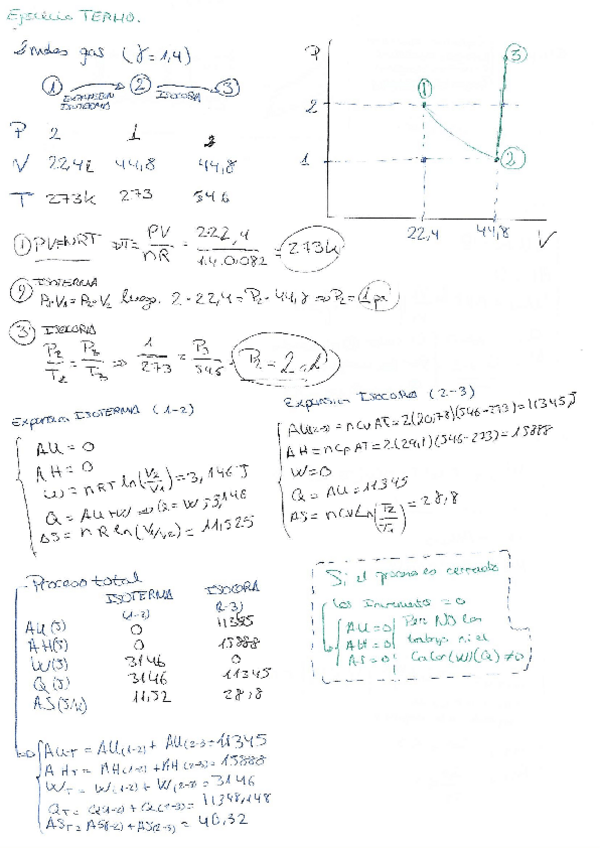 Ejercicio TERMO.
2 moles gas (γ=1,4)
① → ② → ③
EXPANSION ISOTERMA ISOCORA
P 2 1 2
V 22,4L 44,8 44,8
T 273K 273 546
① PV=nRT T= PV/nR = 2·22,4/1·0,082 = 273K
② ISOTERMA
P₁·V₁=P₂·V₂ luego. 2·22,4=P₂·44,8 ⇒ P₂=1
③ ISOCORA
P₂/T₂ = P₃/T₃ ⇒ 1/273 = P₃/546
P
2
1
① ② ③
22,4 44,8 V
Expansion ISOTERMA (1-2)
ΔU=0
ΔH=0
W=nRT ln(V₂/V₁)=3,146 J
Q=ΔU+W ⇒ Q=W=3,146
ΔS=nR ln(V₁/V₂)=11,525
Expansion ISOCORA (2-3)
ΔU(2-3)=nCvΔT=2(20,78)(546-273)=11345J
ΔH=nCpΔT=2(29,1)(546-273)=15888
W=0
Q=ΔU=11345
ΔS=nCvLn(T₂/T₁)=28,8
Proceso total
ISOTERMA ISOCORA
(1-2) (2-3)
ΔU(J) 0 11345
ΔH(J) 0 15888
W(J) 3146 0
Q(J) 3146 11345
ΔS(J/K) 11,52 28,8
Si el proceso es cerrado
los Incrementos=0
ΔU=0 Pero NO los
ΔH=0 trabajo ni el
ΔS=0 Calor(W)(Q)≠0
ΔUT=ΔU(1-2)+ΔU(2-3)=11345
ΔHT=ΔH(1-2)+ΔH(2-3)=15888
WT=W(1-2)+W(2-3)=3146
QT=Q(1-2)+Q(2-3)=11348,148
ΔST=ΔS(1-2)+ΔS(2-3)=40,32